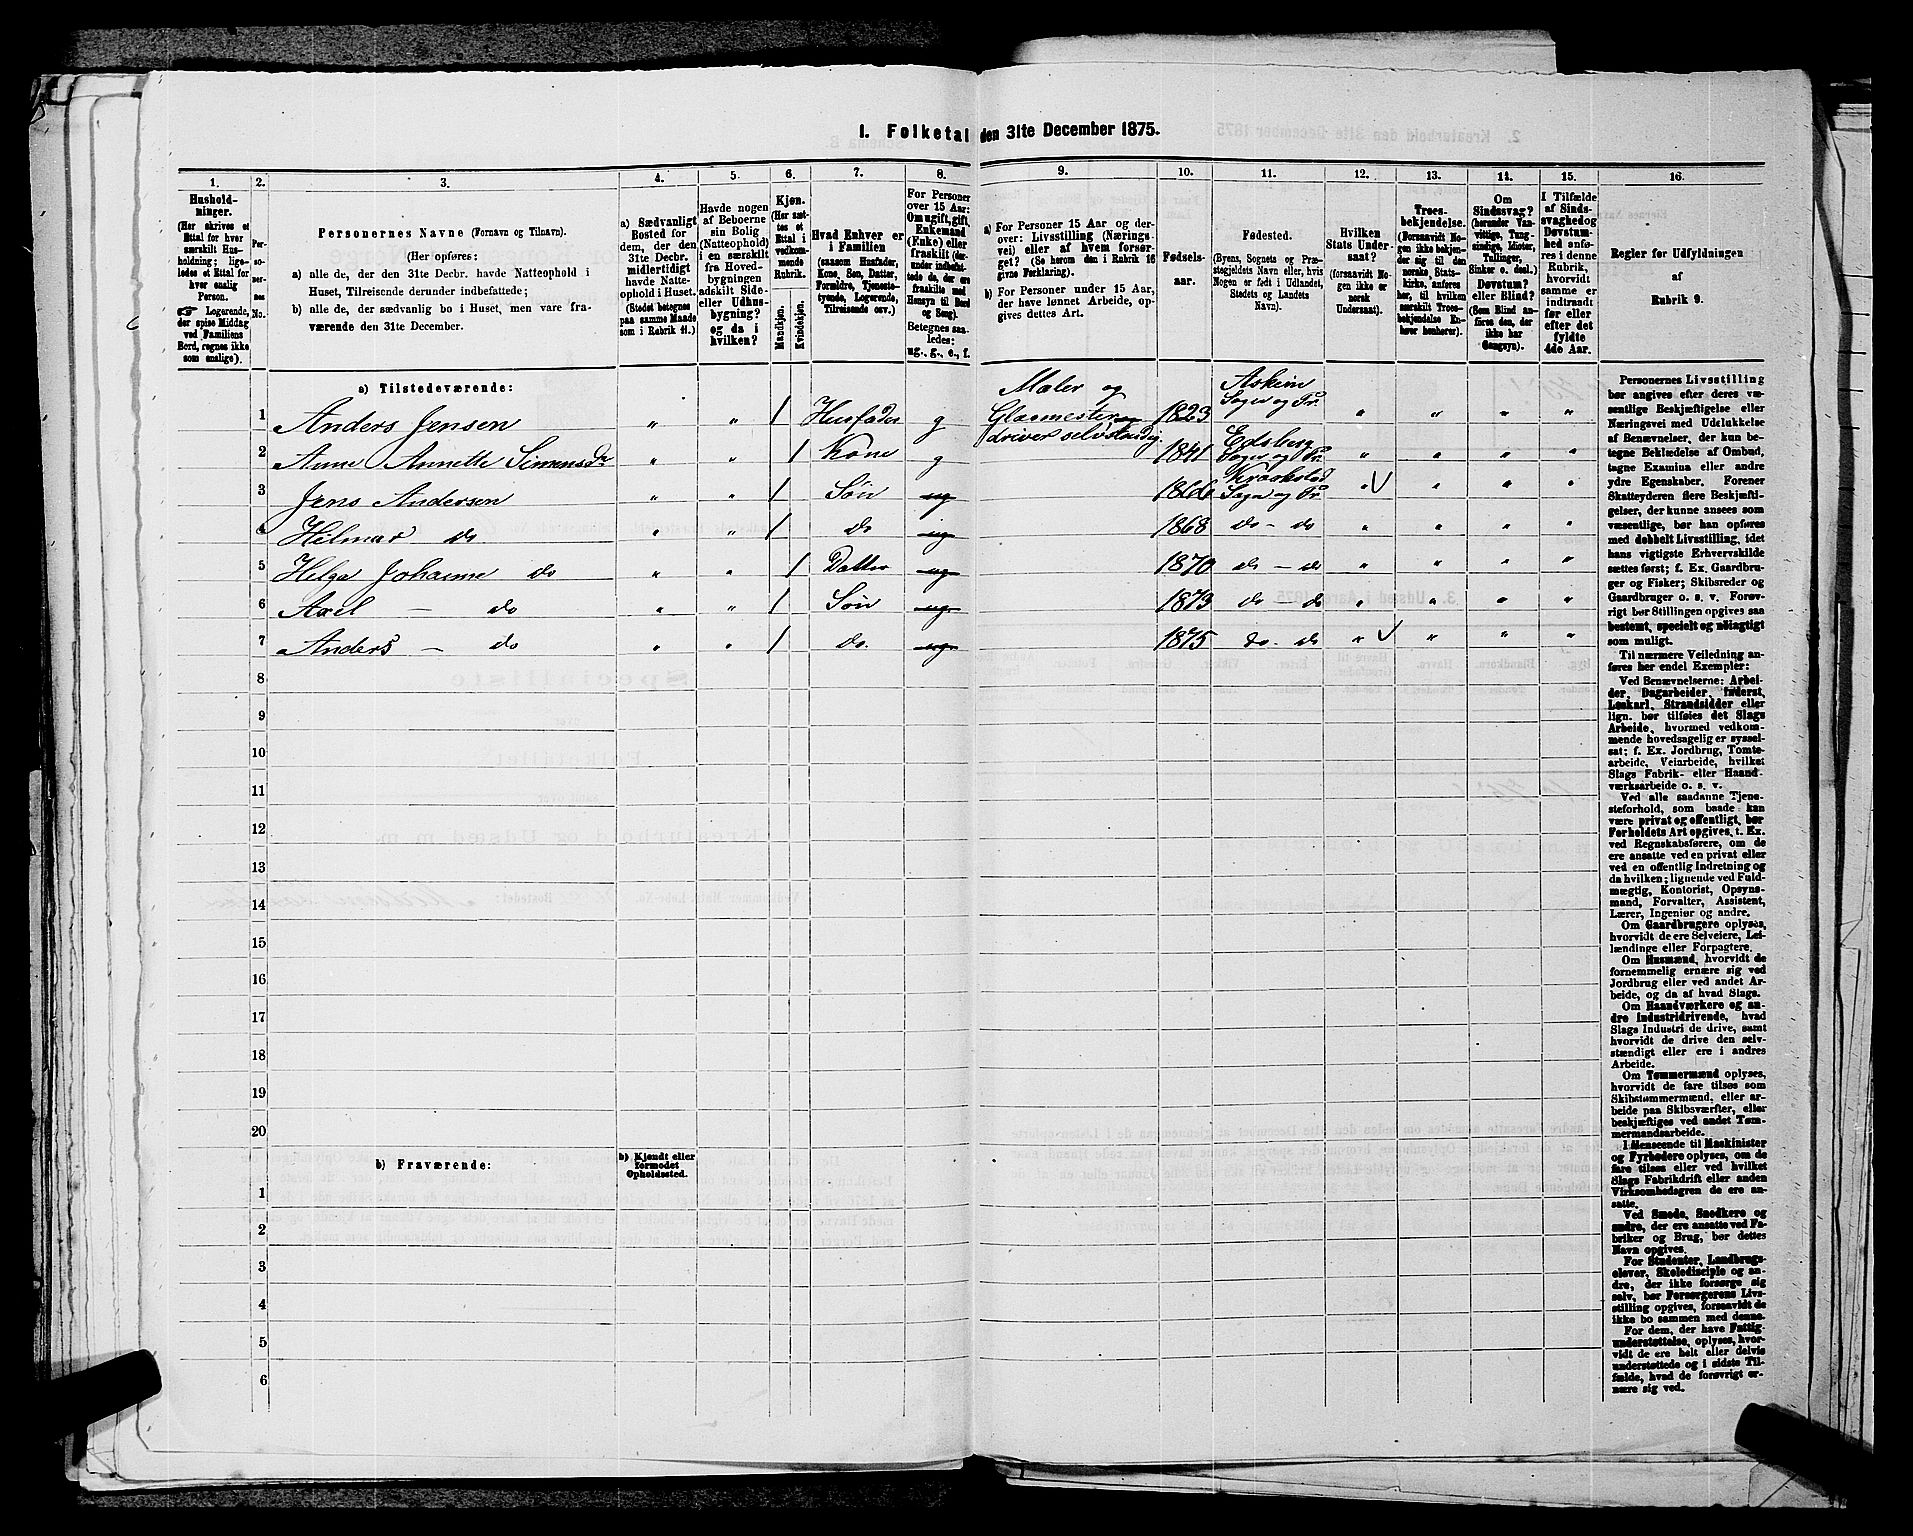 I. Folketal den 31te December 1875.
1. 2. 3. 4. 5. 6. 7. 8. 9. 10. 11. 12. 13. 14. 15. 16.
Hushold-
ninger.
(Her skrives et
Ettal for hver
særskilt Hus-
holdning; lige-
ledes et Ettal for
hver enslig
Person.
☛ Logerende,
der spise Middag
ved Familiens
Bord, regnes ikke
som enslige).
Per-
so-
ner-
nes
No.
Personernes Navne (Fornavn og Tilnavn).
(Her opføres:
a) alle de, der den 31te Decbr. havde Natteophold i
Huset, Tilreisende derunder indbefattede;
b) alle de, der sædvanlig bo i Huset, men vare fra-
værende den 31te December.
a) Sædvanligt
Bosted for
dem, der den
31te Decbr.
midlertidigt
havde Natte-
ophold i Huset.
(Stedet betegnes
paa samme Maade
som i Rubrik 11.)
Havde nogen
af Beboerne
sin Bolig
(Natteophold)
i en særskilt
fra Hoved-
bygningen
adskilt Side-
eller Udhus-
bygning?
og da i
hvilken?
Kjøn.
(Her sæt-
tes et
Ettal i
vedkom-
mende
Rubrik.
Mandkjøn.
Kvindekjøn.
Hvad Enhver er
i Familien
(saasom Husfader,
Kone, Søn, Datter,
Forældre, Tjeneste-
tyende, Logerende,
Tilreisende osv.)
For Personer
over 15 Aar:
Om ugift, gift,
Enkemand
(Enke) eller
fraskilt (der-
under indbefat-
tede de, der ere
fraskilte med
Hensyn til Bord
og Seng).
Betegnes saa-
ledes:
ug., g., e., f.
a) For Personer 15 Aar og der-
over: Livsstilling (Nærings-
vei) eller af hvem forsør-
get? (Se herom den i Rubrik 16
givne Forklaring).
b) For Personer under 15 Aar,
der have lønnet Arbeide, op-
gives dettes Art.
Fødsels-
aar.
Fødested.
(Byens, Sognets og Præ-
stegjeldets Navn eller, hvis
Nogen er født i Udlandet,
Stedets og Landets
Navn).
Hvilken
Stats Under-
saat?
(forsaavidt No-
gen ikke er
norsk
Undersaat).
Troes-
bekjendelse.
(Forsaavidt No-
gen ikke bekjen-
der sig til den
norske Stats-
kirke, anføres
her, til hvilken
særskilt Troes-
bekjendelse En-
hver henhører).
Om
Sindssvag?
(herunder Van-
vittige, Tung-
sindige, Idioter,
Tullinger,
Sinker o. desl.)
Døvstum?
eller Blind?
(Som Blind an-
føres den, der
ikke har
Gangsyn).
I Tilfælde
af Sinds-
svaghed og
Døvstum-
hed anfø-
res i denne
Rubrik,
hvorvidt
samme er
indtraadt
før eller
efter det
fyldte
4de Aar.
Regler for Udfyldningen
af
Rubrik 9.
a) Tilstedeværende:
1 Anders Jensen „ „ 1 Husfader g Maler og Glasmester driver selvstændig 1823 Askim Sogn og Pr. „ „ „ „
2 Anne Annette Simensdr „ „ 1 Kone g 1841 Edsberg Sogn og Pr. „ „ „ „
3 Jens Andersen „ „ 1 Søn ug 1866 Kraakstad Sogn og Pr. „ „ „ „
4 Hilmar do „ „ 1 do ug 1868 do - do „ „ „ „
5 Helga Johanne do „ „ 1 Datter ug 1870 do - do „ „ „ „
6 Axel - do „ „ 1 Søn ug 1873 do - do „ „ „ „
7 Anders - do „ „ 1 do. ug 1875 do. do „ „ „ „
8
9
10
11
12
13
14
15
16
17
18
19
20
b) Fraværende:
b) Kjendt eller
formodet
Opholdssted.
1
2
3
4
5
6
Personernes Livsstilling
bør angives efter deres væ-
sentlige Beskjæftigelse eller
Næringsvei med Udelukkelse
af Benævnelser, der kun be-
tegne Beklædelse af Ombud,
tagne Examina eller andre
ydre Egenskaber. Forener
Skatteyderen flere Beskjæftil-
gelser, der kunne ansees som
væsentlige, bør han opføres
med dobbelt Livsstilling, idet
hans vigtigste Erhvervskilde
sættes først; f. Ex. Gaardbru-
ger og Fisker; Skibsreder og
Gaardbruger o. s. v. Forøv-
rigt bør Stillingen opgives saa
bestemt, specielt og nøiagtigt
som muligt.
Til nærmere Veiledning an-
føres her endel Exempler:
Ved Benævnelserne: Arbei-
der, Dagarbeider, Inderst,
Løskarl, Strandsidder eller
lign. bør tilføies det Slags
Arbeide, hvormed vedkom-
mende hovedsagelig er syssel-
sat; f. Ex. Jordbrug, Tomte-
arbeide, Veiarbeide, hvilket
Slags Fabrik- eller Haand-
værksarbeide o. s. v.
Ved alle saadanne Tjene-
steforhold, som baade kan
være privat og offentligt, bør
Forholdets Art opgives, t. Ex.
ved Regnskabsførere, om de
ere ansatte ved en privat eller
ved en offentlig Indretning og
da hvilken; lignende ved Fuld-
mægtig, Kontorist, Opsyns-
mand, Forvalter, Assistent,
Lærer, Ingeniør og andre.
Om Gaardbrugere oplyses,
hvorvidt de ere Selveiere, Lei-
lændinge eller Forpagtere.
Om Husmænd, hvorvidt de
fornemmelig ernære sig ved
Jordbrug eller ved andet Ar-
beide, og da af hvad Slags.
Om Haandværkere og an-
dre Industridrivende, hvad
Slags Industri de drive, samt
hvorvidt de drive den selv-
stændigt eller ere i andres
Arbeide.
Om Tømmermænd oplyses,
hvorvidt de fare tilsøs som
Skibstømmermænd, eller ar-
beide paa Skibsværfter, eller
beskjæftiges ved andet Tøm-
mermandsarbeide.
I Henseende til Maskinister
og Fyrbødere oplyses, om de
fare tilsøs eller ved hvilket
Slags Fabrikdrift eller anden
Virksomhedsgren de ere an-
satte.
Ved Smede, Snedkere og
andre, der ere ansatte ved Fa-
briker og Brug, bør dettes
Navn opgives.
For Studenter, Landbrugs-
elever, Skoledisciple og an-
dre, der ikke forsørge sig
selv, bør Forsørgerens Livs-
stilling opgives, forsaavidt de
ikke bo sammen med denne.
For dem, der have Fattig-
understøttelse, oplyses, hvor-
vidt de ere helt eller delvis
understøttede og i sidste Til-
fælde, hvad de forøvrigt er-
nære sig ved.